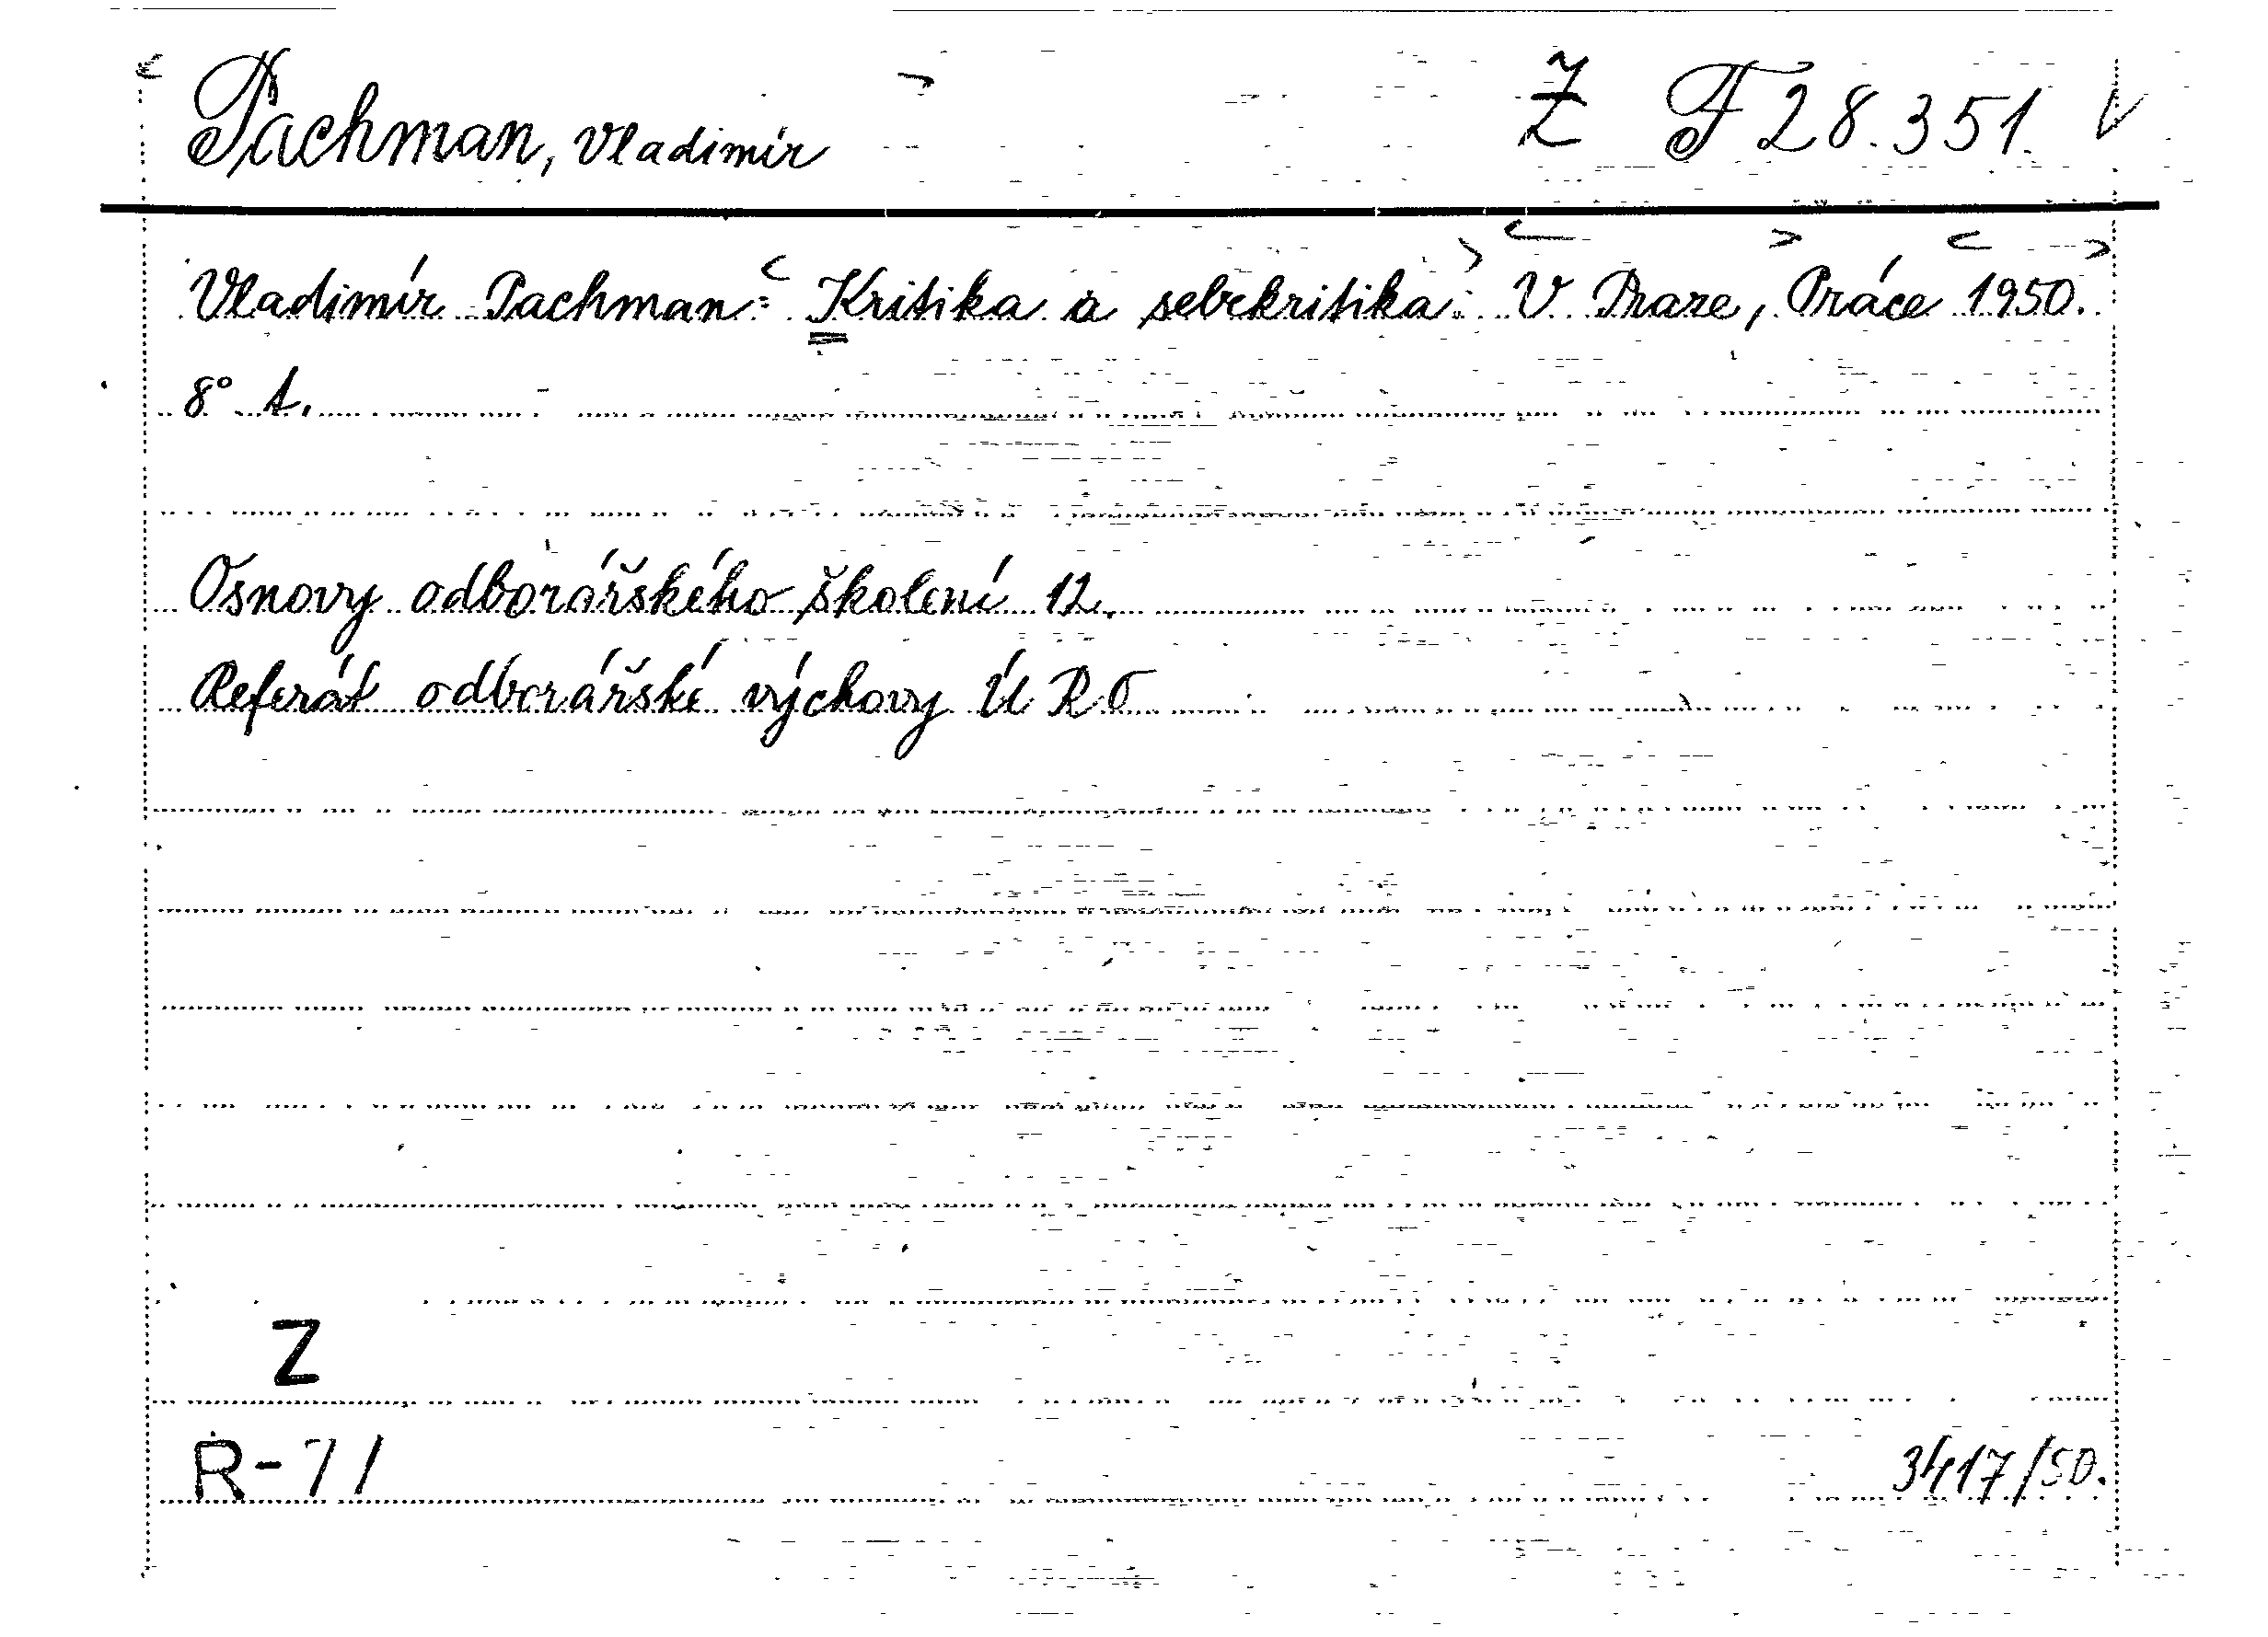 Pachman, Vladimír Z F 28.351. V
Vladimír Pachman: Kritika a sebekritika. V Praze, Práce 1950.
8° A.
Osnovy odborářského školení 12.
Referát odborářské výchovy ÚRO
Z
R-71
3417/50.